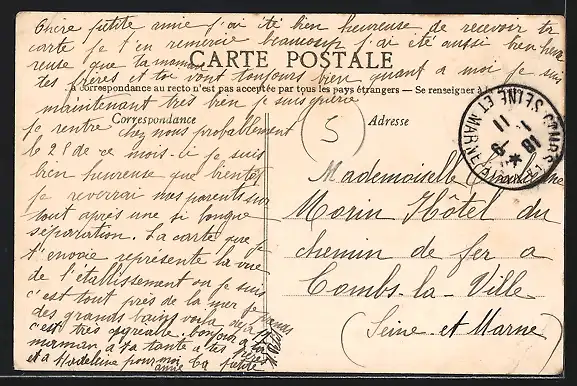 Chère petite amie j'ai été bien heureuse de recevoir ta
carte je t'en remercie beaucoup j'ai été aussi bien heu
reuse que ta maman
CARTE POSTALE
tes frères et toi vont toujours bien quant a moi je suis
La correspondance au recto n'est pas acceptée par tous les pays étrangers — Se renseigner à la Poste
maintenant très bien je suis guérie
Correspondance
Adresse
5
je rentre chez nous probablement
le 28 de ce mois-ci je suis
bien heureuse que bientôt
je reverrai mes parents sur
tout après une si longue
séparation. La carte que je
t'envoie représente la vue
de l'établissement ou je suis
c'est tout près de la mer je prends
des grands bains voilà déjà
c'est très agréable. bonjour a ta
maman a ta tante a tes frères
et a Madeleine pour moi
amie ta petite
Mademoiselle
Morin Hôtel du
chemin de fer a
Combs-la-Ville
(Seine-et-Marne)
COMBS
SEINE ET MARNE
18
11